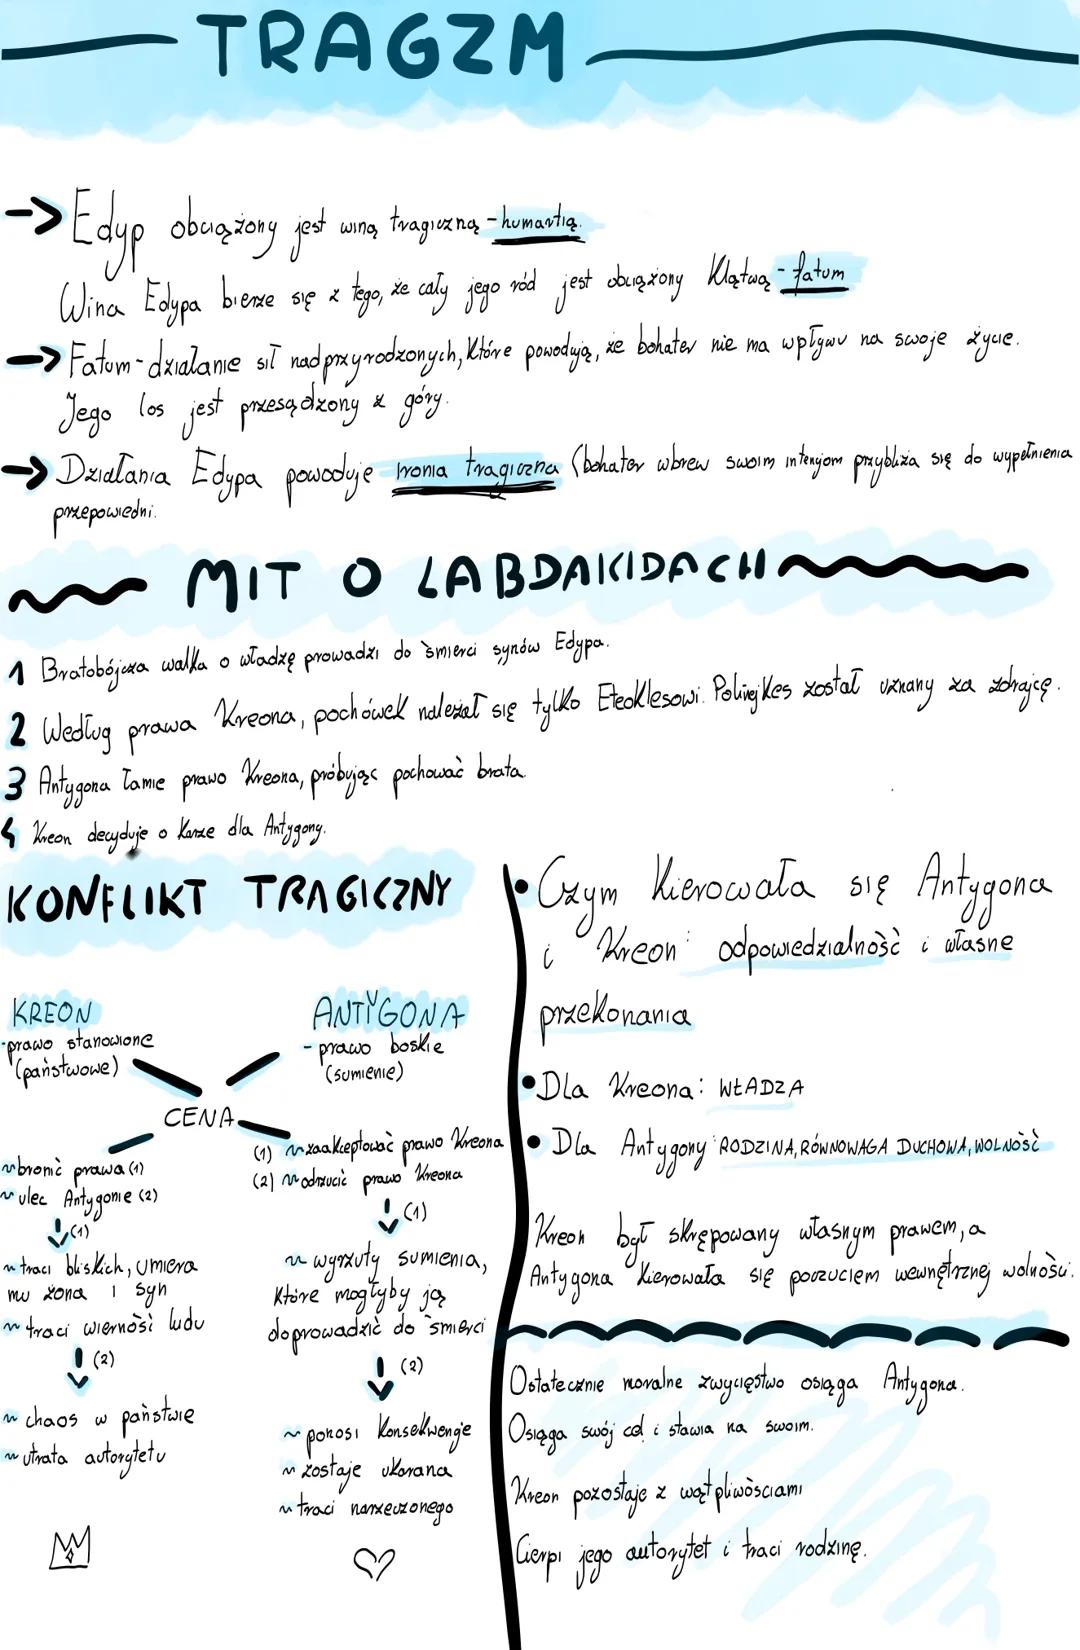 TRAGZM
-> Edyp obciążony jest winą tragiczną - humartią.
Wina Edypa bierze się z tego, że cały jego ród jest obciążony klątwą - fatum
-> Fatum - działanie sił nadprzyrodzonych, które powodują, że bohater nie ma wpływu na swoje życie.
Jego los jest przesądzony z góry.
-> Działania Edypa powoduje ironia tragiczna (bohater wbrew swoim intencjom przybliża się do wypełnienia
przepowiedni.
MIT O LABDAKIDACH
1 Bratobójcza walka o władzę prowadzi do śmierci synów Edypa.
2 Według prawa Kreona, pochówek należał się tylko Eteoklesowi. Polinejkes został uznany za zdrajcę.
3 Antygona łamie prawo Kreona, próbując pochować brata.
4 Kreon decyduje o karze dla Antygony.
KONFLIKT TRAGICZNY
KREON
- prawo stanowione
(państwowe)
ANTYGONA
- prawo boskie
(sumienie)
CENA
~ bronić prawa (1)
~ ulec Antygonie (2)
(1)
~ traci bliskich, umiera
mu żona i syn
~ traci wierność ludu
(2)
~ chaos w państwie
~ utrata autorytetu
(1) ~ zaakceptować prawo Kreona
(2) ~ odrzucić prawo Kreona
(1)
~ wyrzuty sumienia,
które mogłyby ją
doprowadzić do śmierci
(2)
~ ponosi konsekwencje
~ zostaje ukarana
~ traci narzeczonego
• Czym kierowała się Antygona
i Kreon: odpowiedzialność i własne
przekonania
• Dla Kreona: WŁADZA
• Dla Antygony: RODZINA, RÓWNOWAGA DUCHOWA, WOLNOŚĆ
Kreon był skrępowany własnym prawem, a
Antygona kierowała się poczuciem wewnętrznej wolności.
Ostatecznie moralne zwycięstwo osiąga Antygona.
Osiąga swój cel i stawia na swoim.
Kreon pozostaje z wątpliwościami
Cierpi jego autorytet i traci rodzinę.